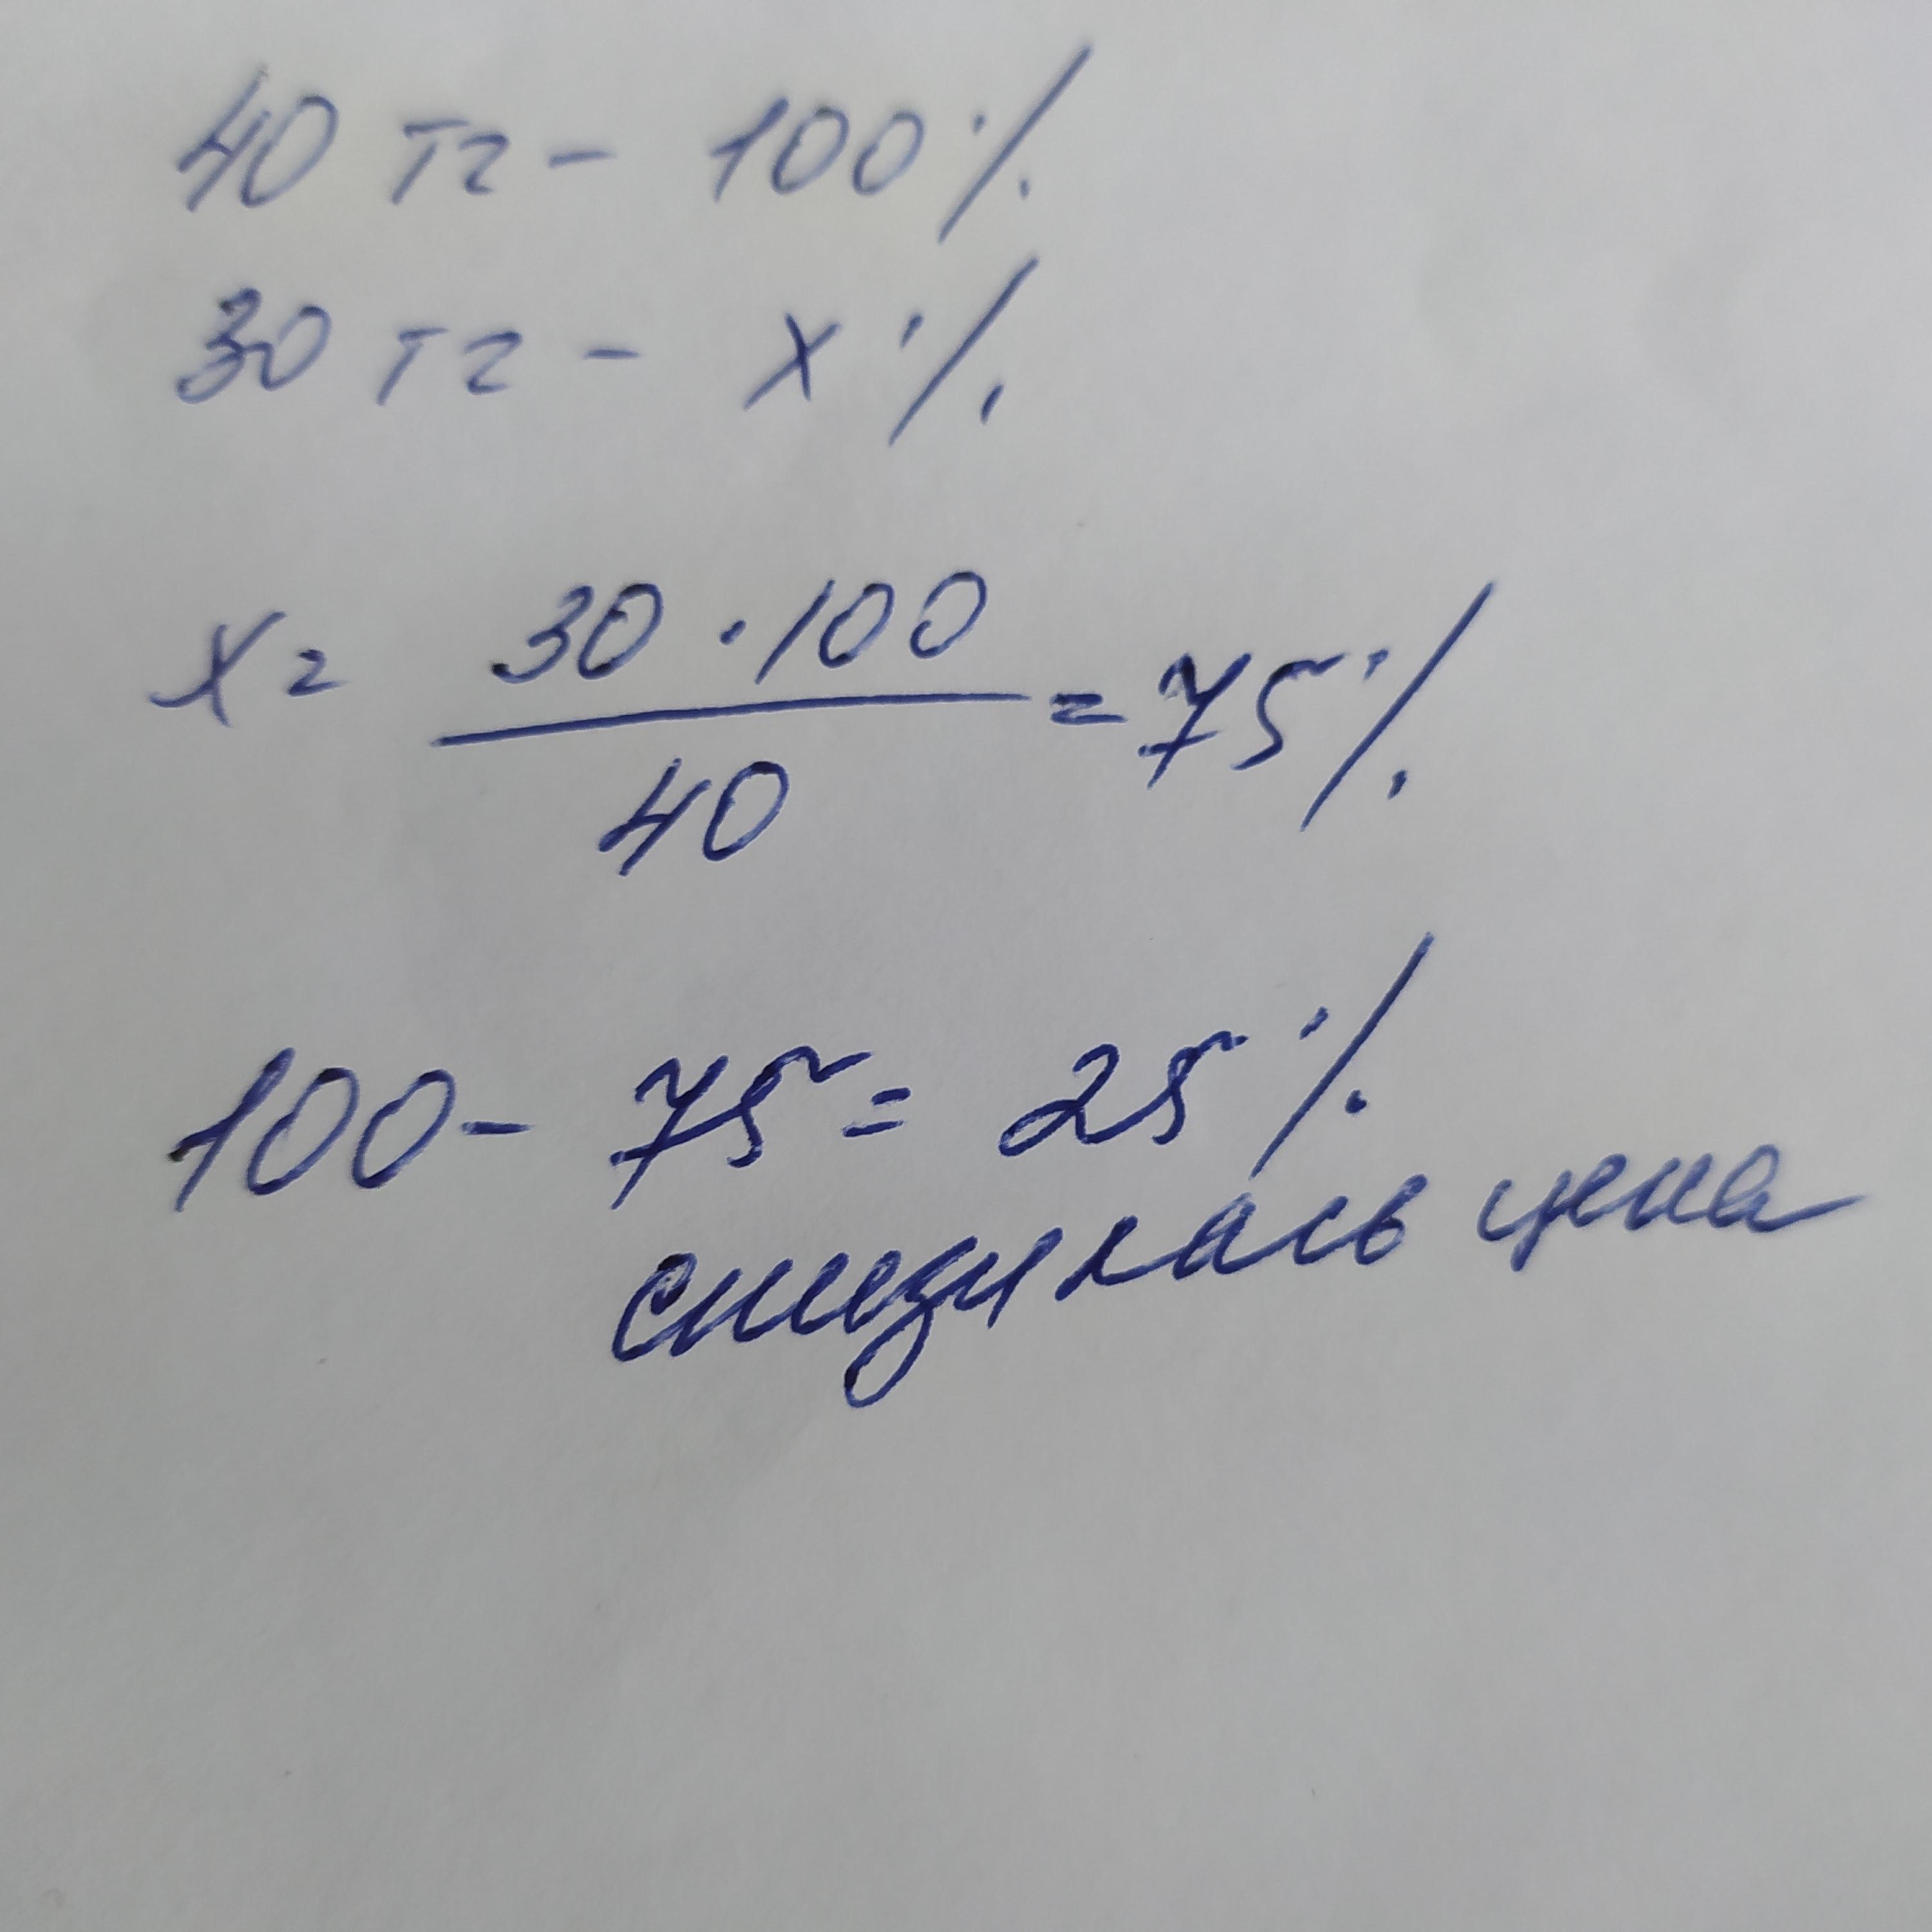 40 тг - 100%
30 тг - х%
х = 30 · 100 / 40 = 75%
100 - 75 = 25%
снизилась цена